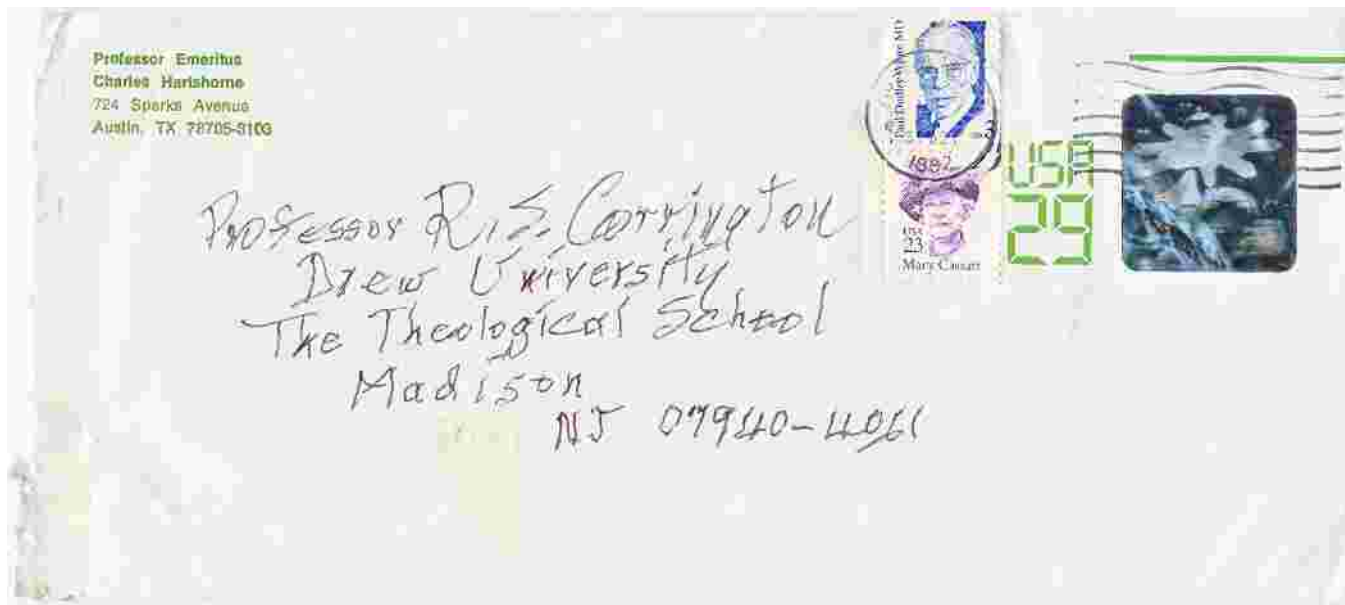 Professor Emeritus
Charles Hartshorne
724 Sparks Avenue
Austin, TX 78705-3103
Paul Dudley White MD
3
1992
USA
23
Mary Cassatt
USA
29
Professor R.S. Corrington
Drew University
The Theological School
Madison
NJ 07940-4061